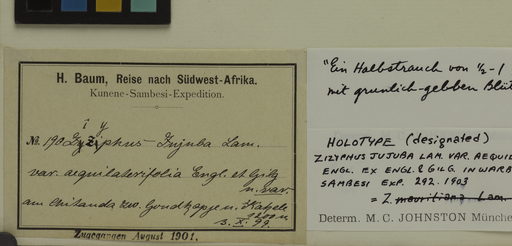 H. Baum, Reise nach Südwest-Afrika.
Kunene-Sambesi-Expedition.
i y
No. 190 Zizyphus Jujuba Lam.
var. aequilaterifolia Engl. et Gilg
n. var.
am Chitanda zw. Goudkopje u. Kakele
1100 m
3. X. 99.
Zugegangen August 1901.
"Ein Halbstrauch von ½-1
mit grunlich-gelben Blüt
HOLOTYPE (designated)
ZIZYPHUS JUJUBA LAM. VAR. AEQUIL
ENGL. EX ENGL. & GILG. IN WARB
SAMBESI EXP. 292. 1903
= Z. mauritiana Lam.
Determ. M. C. JOHNSTON Münche